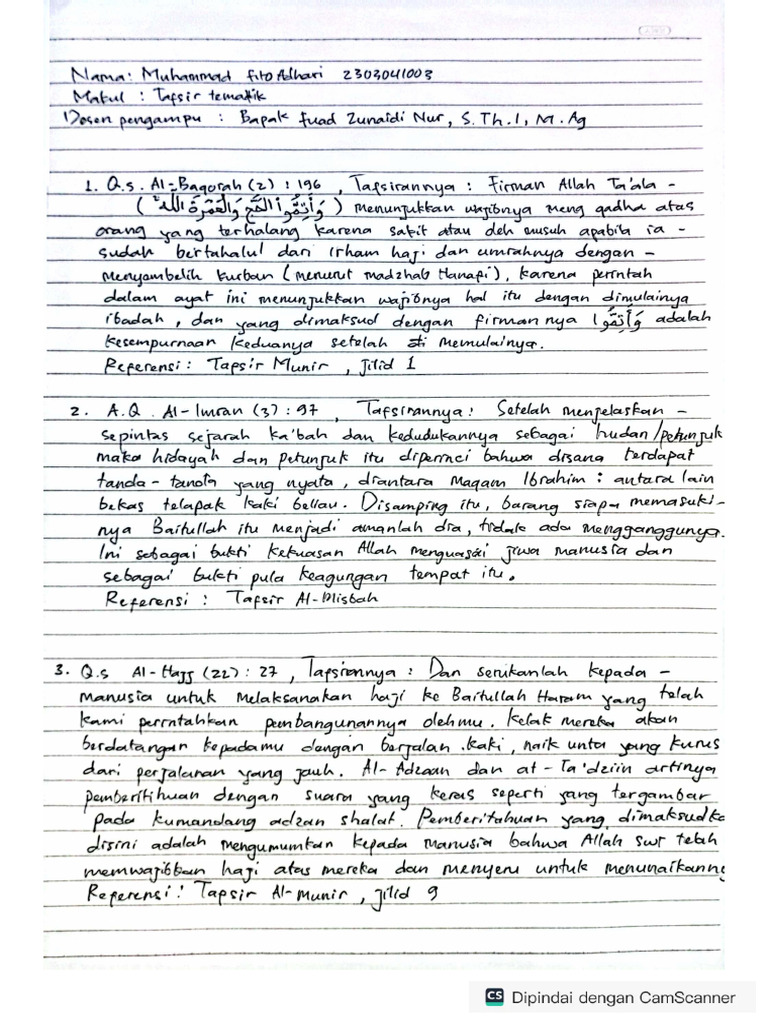 Nama: Muhammad Fito Adhari 2303041003
Matkul : Tafsir tematik
Dosen pengampu : Bapak Fuad Zunaidi Nur, S.Th.I, M.Ag
1. Q.s. Al-Baqorah (2) : 196 , Tafsirannya : Firman Allah Ta'ala -
( وَأَتِمُّوا الْحَجَّ وَالْعُمْرَةَ لِلَّهِ ) menunjukkan wajibnya meng qadha atas
orang yang terhalang karena sakit atau oleh musuh apabila ia -
sudah bertahalul dari irham haji dan umrahnya dengan -
Menyembelih kurban (menurut madzhab Hanafi), karena perintah
dalam ayat ini menunjukkan wajibnya hal itu dengan dimulainya
ibadah , dan yang dimaksud dengan firmannya وَأَتِمُّوا adalah
kesempurnaan keduanya setelah di memulainya.
Referensi : Tafsir Munir , Jilid 1
2. A.Q. Al-Imran (3) : 97 , Tafsirannya : Setelah menjelaskan -
sepintas sejarah ka'bah dan kedudukannya sebagai hudan/petunjuk
maka hidayah dan petunjuk itu diperinci bahwa disana terdapat
tanda-tanda yang nyata, diantara Maqam Ibrahim : antara lain
bekas telapak kaki beliau. Disamping itu, barang siapa memasuki-
nya Baitullah itu menjadi amanlah dia, tidak ada mengganggunya.
Ini sebagai bukti kekuasan Allah menguasai jiwa manusia dan
sebagai bukti pula keagungan tempat itu.
Referensi : Tafsir Al-Misbah
3. Q.s Al-Hajj (22) : 27 , Tafsirannya : Dan serukanlah kepada -
manusia untuk melaksanakan haji ke Baitullah Haram yang telah
kami perintahkan pembangunannya olehmu. Kelak mereka akan
berdatangan kepadamu dengan berjalan kaki, naik unta yang kurus
dari perjalanan yang jauh. Al-Adzaan dan at-Ta'dziin artinya
pemberitihuan dengan suara yang keras seperti yang tergambar
pada kumandang adzan shalat. Pemberitahuan yang dimaksudka
disini adalah mengumumkan kepada manusia bahwa Allah swt telah
memwajibkan haji atas mereka dan menyeru untuk menunaikanny
Referensi : Tafsir Al-Munir , Jilid 9
CS Dipindai dengan CamScanner